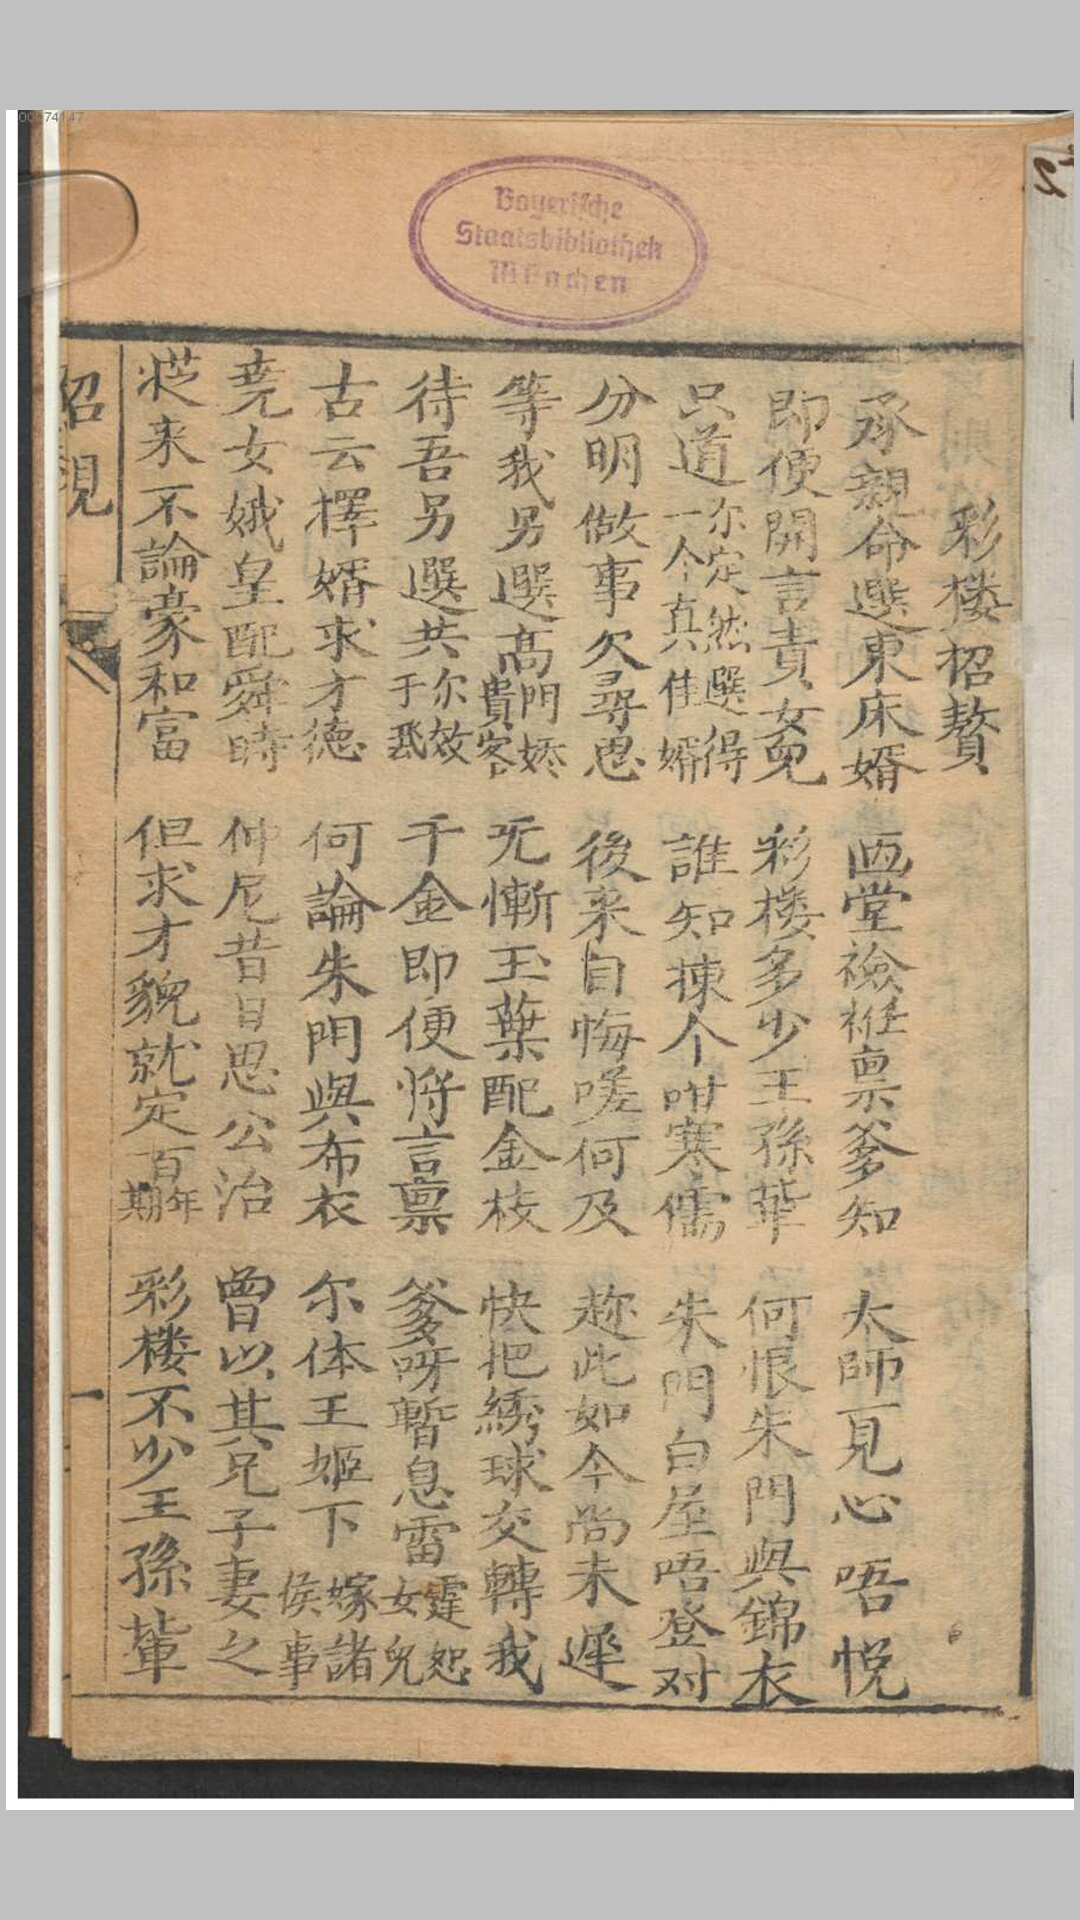 00074147
Bayerische
Staatsbibliothek
München
彩楼招贅
承親命選東床婿 画堂襝袵禀爹知 太師一見心唔悅
即便開言責女兒 彩楼多少王孫輩 何恨朱門與錦衣
只道尔定然選得一个真佳婿 誰知揀个咁寒儒 朱門白屋唔登对
分明做事欠尋思 後来自悔嗟何及 趂此如今尚未遲
等我另選高門嬌貴客 旡慚玉葉配金枝 快把綉球交轉我
待吾另選共尔效于飛 千金即便将言禀 爹呀暫息雷霆恕女兒
古云擇婿求才德 何論朱門與布衣 尔体王姬下嫁諸侯事
堯女娥皇配舜時 仲尼昔日思公治 曾以其兄子妻之
従来不論豪和富 但求才貌就定百年期 彩楼不少王孫輩
招親
一